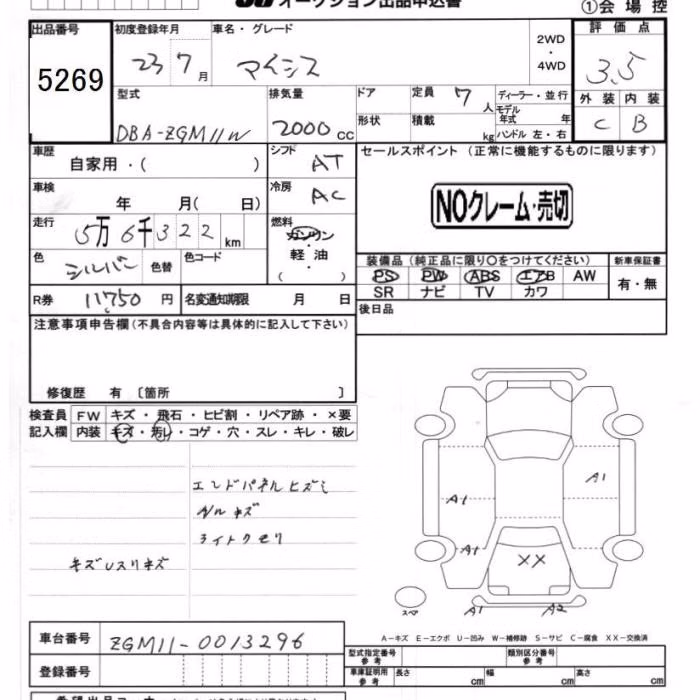 オークション出品申込書
①会場控
出品番号 初度登録年月 車名・グレード 2WD・4WD 評価点
5269 23 7月 マイシス 3.5
型式 排気量 ドア 定員 7人 ディーラー・並行 外装 内装
DBA-ZGM11W 2000cc 形状 積載 kg モデル年式 年 ハンドル 左・右 C B
車歴 シフト セールスポイント (正常に機能するものに限ります)
自家用・( ) AT
車検 冷房
年 月( 日) AC NOクレーム・売切
走行 燃料
5万6千322km ガソリン
色 色替 色コード 軽油
シルバー ( ) 装備品(純正品に限り○をつけてください) 新車保証書
PS PW ABS エアB AW 有・無
SR ナビ TV カワ
R券 11750円 名変通知期限 月 日
後日品
注意事項申告欄(不具合内容等は具体的に記入して下さい)
修復歴 有 〔箇所 〕
検査員 FW キズ・飛石・ヒビ割・リペア跡・×要
記入欄 内装 キズ・汚れ・コゲ・穴・スレ・キレ・破レ
エンドパネルヒズミ
A1
ルキズ
A1
ライトクモリ
A1
キズUスリキズ
XX
スペ A1 A2
A-キズ E-エクボ U-凹み W-補修跡 S-サビ C-腐食 XX-交換済
車台番号 ZGM11-0013296
型式指定番号 参考 類別区分番号 参考
登録番号 車庫証明用 参考 長さ cm 幅 cm 高さ cm